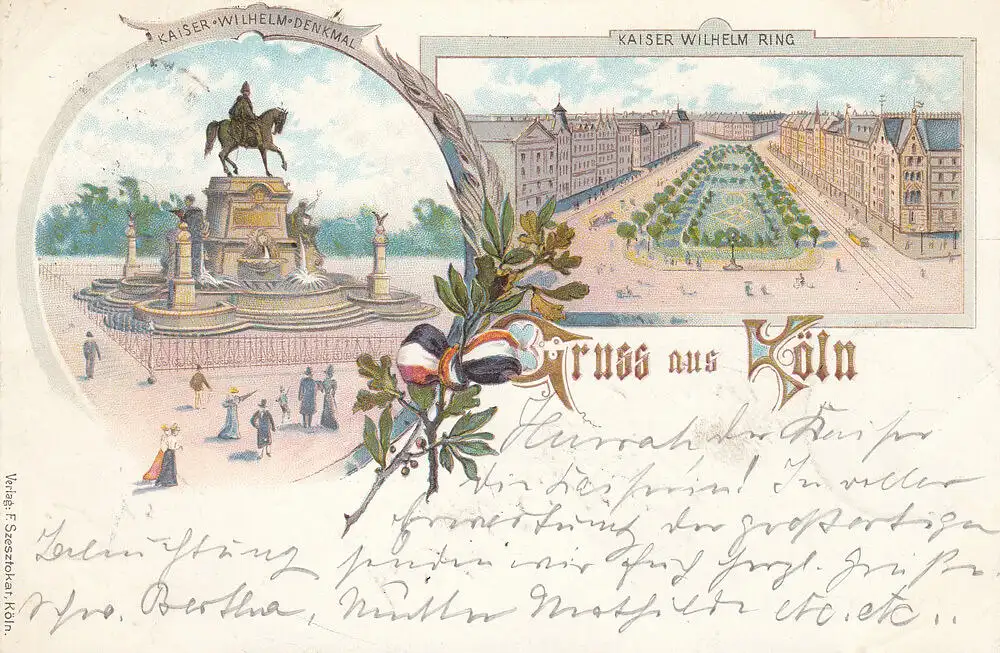 KAISER•WILHELM•DENKMAL
KAISER WILHELM RING
Gruss aus Köln
Hurrah der Kaiser
die Kaiserin! In voller
Erwartung der großartigen
Beleuchtung senden wir Euch herzl. Grüße.
Schw. Bertha, Mutter Mathilde etc. etc..
Verlag: F. Szesztokat, Köln.